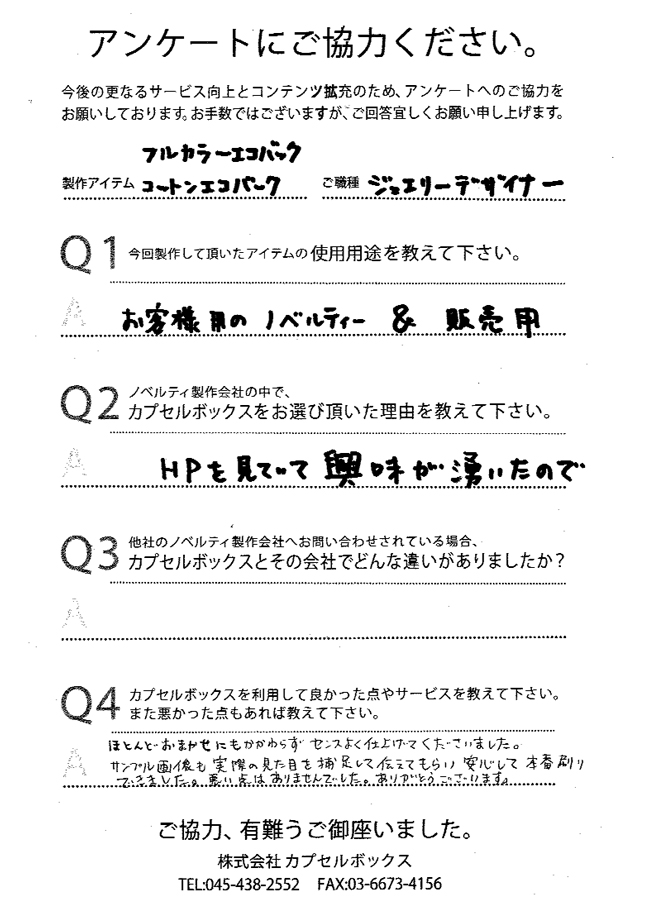 アンケートにご協力ください。
今後の更なるサービス向上とコンテンツ拡充のため、アンケートへのご協力を
お願いしております。お手数ではございますが、ご回答宜しくお願い申し上げます。
フルカラーエコバック
製作アイテム コットンエコバック ご職種 ジュエリーデザイナー
Q1 今回製作して頂いたアイテムの使用用途を教えて下さい。
A お客様用のノベルティー & 販売用
Q2 ノベルティ製作会社の中で、
カプセルボックスをお選び頂いた理由を教えて下さい。
A HPを見ていて興味が湧いたので
Q3 他社のノベルティ製作会社へお問い合わせされている場合、
カプセルボックスとその会社でどんな違いがありましたか?
A
Q4 カプセルボックスを利用して良かった点やサービスを教えて下さい。
また悪かった点もあれば教えて下さい。
A ほとんどおまかせにもかかわらず センスよく仕上げてくださいました。
サンプル画像も実際の見た目を補足して伝えてもらい 安心して本番刷り
できました。悪い点はありませんでした。ありがとうございます。
ご協力、有難うご御座いました。
株式会社 カプセルボックス
TEL:045-438-2552 FAX:03-6673-4156